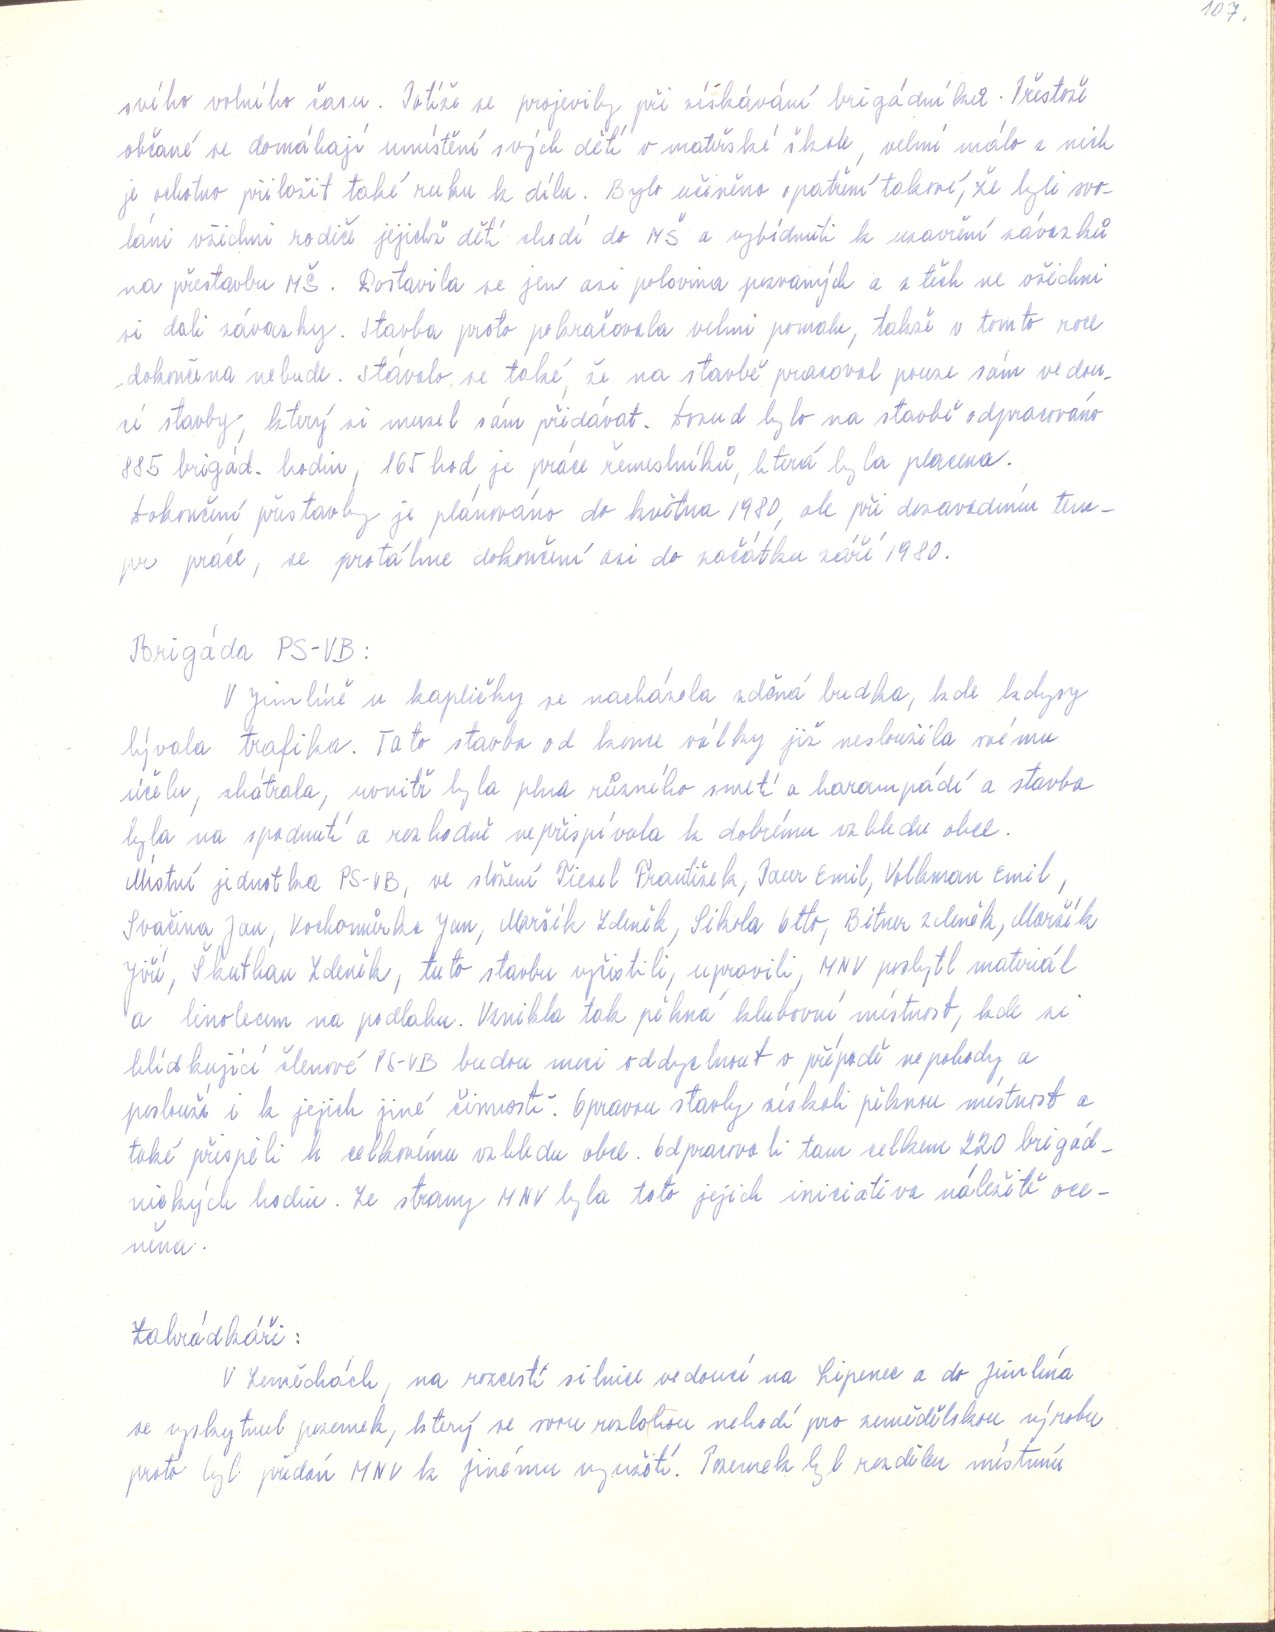 107.
svého volného času. Potíže se projevily při získávání brigádníků. Přestože
občané se domáhají umístění svých dětí v mateřské škole, velmi málo z nich
je ochotno přiložit také ruku k dílu. Bylo učiněno opatření takové, že byli svo-
láni všichni rodiče jejichž děti chodí do MŠ a vybídnuti k uzavření závazků
na přestavbu MŠ. Dostavila se jen asi polovina pozvaných a z těch ne všichni
si dali závazky. Stavba proto pokračovala velmi pomalu, takže v tomto roce
dokončena nebude. Stávalo se také, že na stavbě pracoval pouze sám vedou-
cí stavby, který si musel sám přidávat. Dosud bylo na stavbě odpracováno
885 brigád. hodin, 165 hod je práce řemeslníků, která byla placena.
Dokončení přestavby je plánováno do května 1980, ale při dosavadním tem-
pu práce, se protáhne dokončení asi do začátku září 1980.
Brigáda PS-VB:
V Jimlíně u kapličky se nacházela zděná budka, kde kdysy
bývala trafika. Tato stavba od konce války již nesloužila svému
účelu, chátrala, uvnitř byla plna různého smetí a harampádí a stavba
byla na spadnutí a rozhodně nepřispívala k dobrému vzhledu obce.
Místní jednotka PS-VB, ve složení František, Emil, Volkman Emil,
Svačina Jan, Kochomůrka Jan, Maršík Zdeněk, Sikola Otto, Bitner Zdeněk, Maršík
Jiří, Škuthan Zdeněk, tuto stavbu vyčistili, upravili, MNV poskytl materiál
a linoleum na podlahu. Vznikla tak pěkná klubovní místnost, kde si
hlídkující členové PS-VB budou moci oddychnout v případě nepohody a
poslouží i k jejich jiné činnosti. Opravou stavby získali pěknou místnost a
také přispěli k celkovému vzhledu obce. Odpracovali tam celkem 220 brigád-
nických hodin. Ze strany MNV byla tato jejich iniciativa náležitě oce-
něna.
Zahrádkáři:
V Zeměchách, na rozcestí silnice vedoucí na Lipenec a do Jimlína
se vyskytnul pozemek, který se svou rozlohou nehodí pro zemědělskou výrobu
proto byl předán MNV k jinému využití. Pozemek byl rozdělen místními